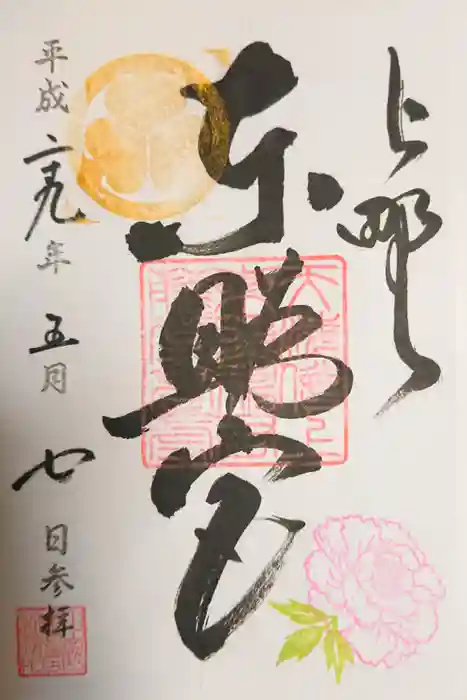 上野
東照宮
平成二十九年五月七日参拝